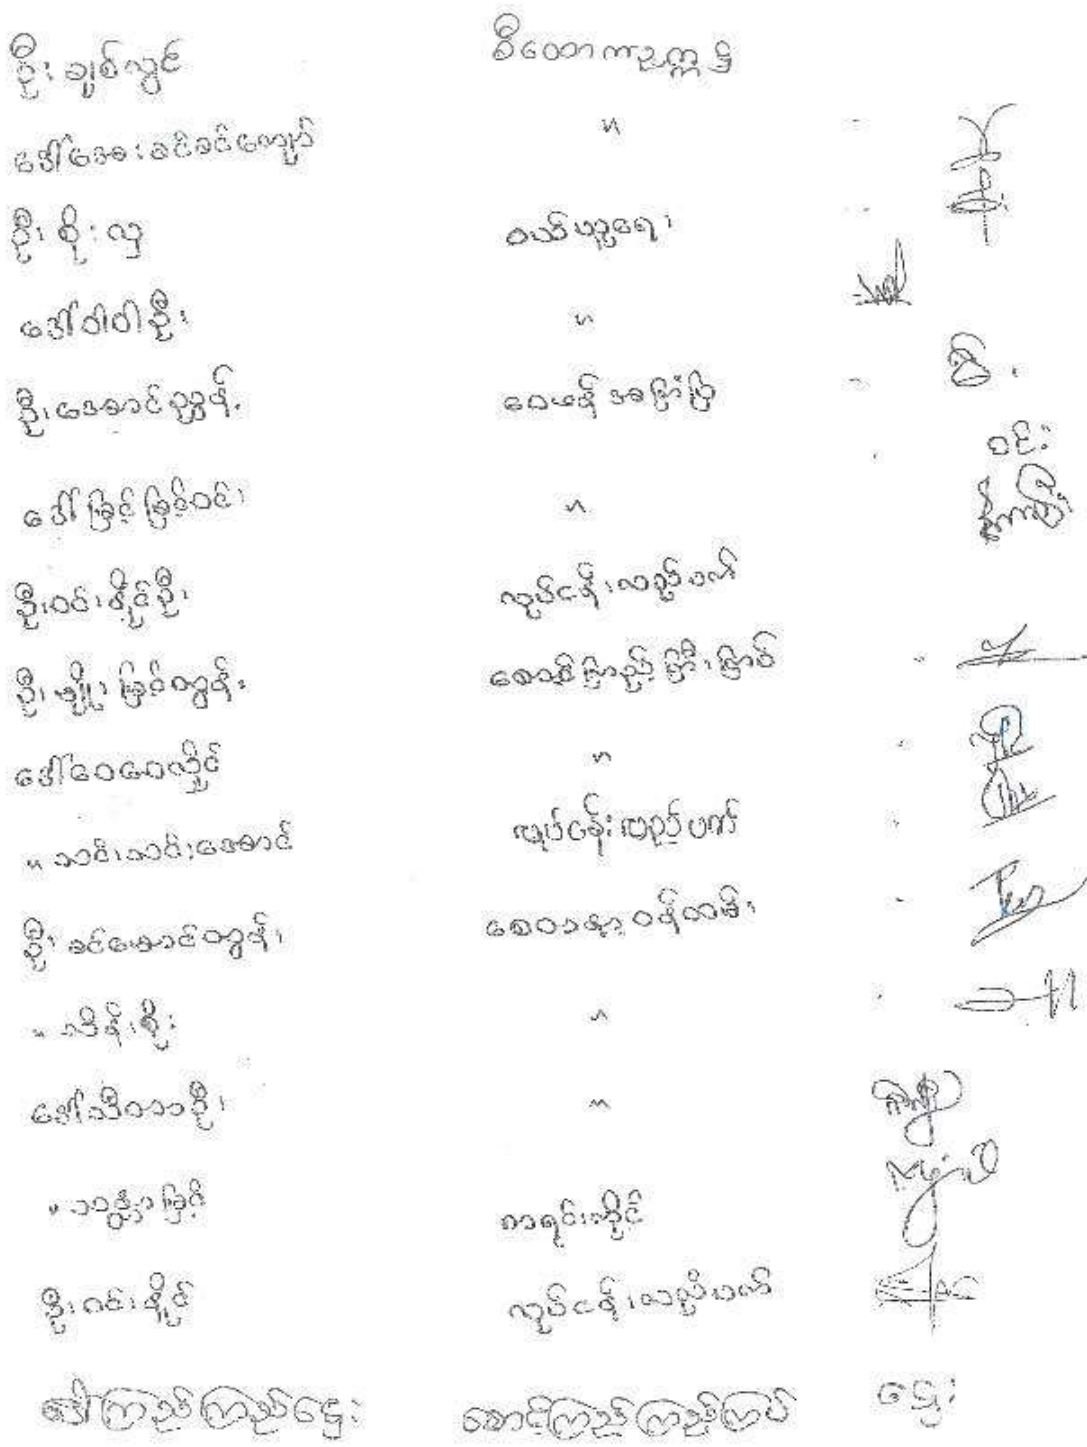 ဦး ချစ်လွင် စီတောကဥက္ကဋ္ဌ
ဒေါ်အေးခင်ခင်ကျော် "
ဦး စိုးလှ ဝယ်ယူရေး
ဒေါ်ဝါဝါဦး "
ဦးအောင်ညွန့် ဝေဖန်အကြံပြု
ဒေါ်မြင့်မြင့်ဝင်း " ဝင်း
ဦးဝင်းနိုင်ဦး လုပ်ငန်းလည်ပတ်
ဦးမျိုးမြင့်ထွန်း စောင့်ကြည့်ကြီးကြပ်
ဒေါ်ဝေဝေလှိုင် "
" သင်းသင်းအောင် လုပ်ငန်းလည်ပတ်
ဦးခင်မောင်ထွန်း စေတနာ့ဝန်ထမ်း
" သိန်းစိုး "
ဒေါ်သီတာဦး "
" သန္တာမြင့် စာရင်းကိုင်
ဦးဝင်းနိုင် လုပ်ငန်းလည်ပတ်
ဒေါ်ကြည်ကြည်ဌေး စောင့်ကြည့်ကြည့်ကြပ် ဌေး